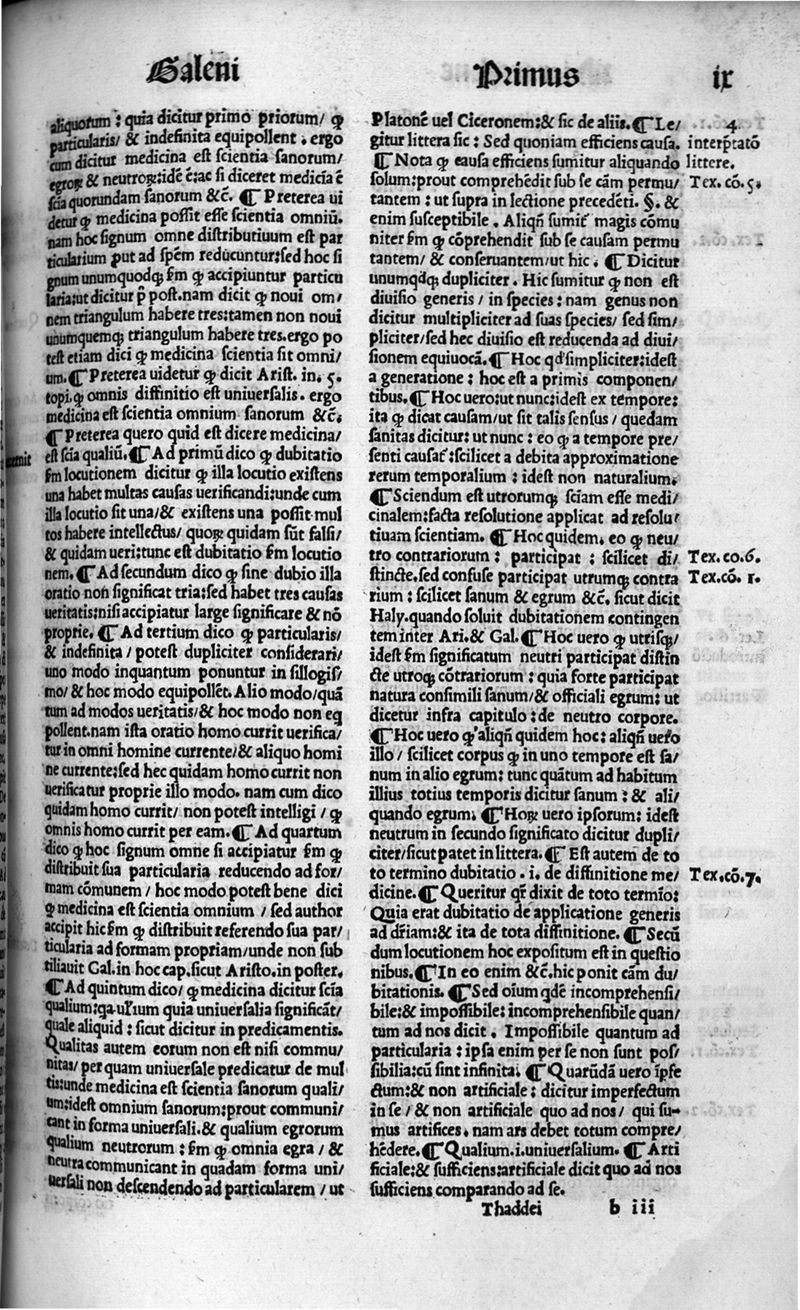 Galeni Primus ix
aliquorum : quia dicitur primo priorum/ ꝙ
particularis/ & indefinita equipollent . ergo
cum dicitur medicina est scientia sanorum/
egroꝝ & neutroꝝ:idē ē:ac si diceret mediciā ē
sc̄ia quorundam sanorum &c̄. ¶ Preterea ui
detur ꝙ medicina possit esse scientia omniū.
nam hoc signum omne distributiuum est par
ticularium ꝓut ad sp̄em reducuntur:sed hoc si
gnum unumquodqꝫ fm̄ ꝙ accipiuntur particu
laria:ut dicitur p̄ post.nam dicit ꝙ noui om/
nem triangulum habere tres:tamen non noui
unumquemqꝫ triangulum habere tres.ergo po
test etiam dici ꝙ medicina scientia sit omni/
um.¶ Preterea uidetur ꝙ dicit Arist. in. 5.
topi.ꝙ omnis diffinitio est uniuersalis. ergo
medicina est scientia omnium sanorum &c̄.
¶ Preterea quero quid est dicere medicina/
est sc̄ia qualiū.¶ Ad primū dico ꝙ dubitatio
fm̄ locutionem dicitur ꝙ illa locutio existens
una habet multas causas uerificandi:unde cum
illa locutio sit una/& existens una possit mul
tos habere intellectus/ quoꝝ quidam sūt falsi/
& quidam ueri:tunc est dubitatio fm̄ locutio
nem.¶ Ad secundum dico ꝙ sine dubio illa
oratio non significat tria:sed habet tres causas
ueritatis:nisi accipiatur large significare & nō
proprie. ¶ Ad tertium dico ꝙ particularis/
& indefinita / potest dupliciter considerari/
uno modo inquantum ponuntur in sillogis/
mo/ & hoc modo equipollēt. Alio modo/quā
tum ad modos ueritatis/& hoc modo non eq
pollent.nam ista oratio homo currit uerifica/
tur in omni homine currente/& aliquo homi
ne currente:sed hec quidam homo currit non
uerificatur proprie illo modo. nam cum dico
quidam homo currit/ non potest intelligi / ꝙ
omnis homo currit per eam.¶ Ad quartum
dico ꝙ hoc signum omne si accipiatur fm̄ ꝙ
distribuit sua particularia reducendo ad for/
mam cōmunem / hoc modo potest bene dici
ꝙ medicina est scientia omnium / sed author
accipit hic fm̄ ꝙ distribuit referendo sua par/
ticularia ad formam propriam/unde non sub
tiliauit Gal.in hoc cap.sicut Aristo.in poster.
¶ Ad quintum dico/ ꝙ medicina dicitur sc̄ia
qualium: quia uniuersalia significāt/
quale aliquid : sicut dicitur in predicamentis.
Qualitas autem eorum non est nisi commu/
nitas/ per quam uniuersale predicatur de mul
tis:unde medicina est scientia sanorum quali/
um:idest omnium sanorum:prout communi/
cant in forma uniuersali.& qualium egrorum
qualium neutrorum : fm̄ ꝙ omnia egra / &
neutra communicant in quadam forma uni/
uersali non descendendo ad particularem / ut
Platonē uel Ciceronem:& sic de aliis.¶ Le/ 4.
gitur littera sic : Sed quoniam efficiens causa. interp̄tatō
¶ Nota ꝙ causa efficiens sumitur aliquando littere.
solum:prout comprehēdit sub se cām permu/ Tex. cō. 5.
tantem : ut supra in lectione precedēti. §. &
enim susceptibile . Aliqn̄ sumit magis cōmu
niter fm̄ ꝙ cōprehendit sub se causam permu
tantem/ & conseruantem/ut hic . ¶ Dicitur
unumqdqꝫ dupliciter . Hic sumitur ꝙ non est
diuisio generis / in species : nam genus non
dicitur multipliciter ad suas species/ sed sim/
pliciter/sed hec diuisio est reducenda ad diui/
sionem equiuocā. ¶ Hoc qd simpliciter:idest
a generatione : hoc est a primis componen/
tibus.¶ Hoc uero:ut nunc:idest ex tempore:
ita ꝙ dicat causam/ut sit talis sensus / quedam
sanitas dicitur: ut nunc : eo ꝙ a tempore pre/
senti causat :scilicet a debita approximatione
rerum temporalium : idest non naturalium.
¶ Sciendum est utrorumqꝫ sciam esse medi/
cinalem:facta resolutione applicat ad resolu/
tiuam scientiam. ¶ Hoc quidem. eo ꝙ neu/
tro contrariorum : participat : scilicet di/ Tex. co. 6.
stincte.sed confuse participat utrumqꝫ contra Tex. cō. 1.
rium : scilicet sanum & egrum &c̄. sicut dicit
Haly.quando soluit dubitationem contingen
tem inter Ari.& Gal.¶ Hoc uero ꝙ utrisqꝫ/
idest fm̄ significatum neutri participat distin
cte utroqꝫ cōtrariorum : quia forte participat
natura consimili sanum/& officiali egrum: ut
dicetur infra capitulo : de neutro corpore.
¶ Hoc uero ꝙ aliqn̄ quidem hoc: aliqn̄ uero
illo / scilicet corpus ꝙ in uno tempore est sa/
num in alio egrum: tunc quātum ad habitum
illius totius temporis dicitur sanum : & ali/
quando egrum. ¶ Hoꝝ uero ipsorum: idest
neutrum in secundo significato dicitur dupli/
citer/sicut patet in littera.¶ Est autem de to
to termino dubitatio . i. de diffinitione me/ Tex. cō. 7.
dicine.¶ Queritur qr̄ dixit de toto termīo:
Quia erat dubitatio de applicatione generis
ad dr̄iam:& ita de tota diffinitione. ¶ Secū
dum locutionem hoc expositum est in questio
nibus.¶ In eo enim &c̄.hic ponit cām du/
bitationis. ¶ Sed oīum qdē incomprehensi/
bile:& impossibile: incomprehensibile quan/
tum ad nos dicit . Impossibile quantum ad
particularia : ipsa enim per se non sunt pos/
sibilia:cū sint infinita. ¶ Quarūdā uero īpfe
ctum:& non artificiale : dicitur imperfectum
in se / & non artificiale quo ad nos / qui su-
mus artifices. nam ars debet totum compre/
hēdere. ¶ Qualium.i.uniuersalium. ¶ Arti
ficiale:& sufficiens:artificiale dicit quo ad nos
sufficiens comparando ad se.
Thaddei b iii